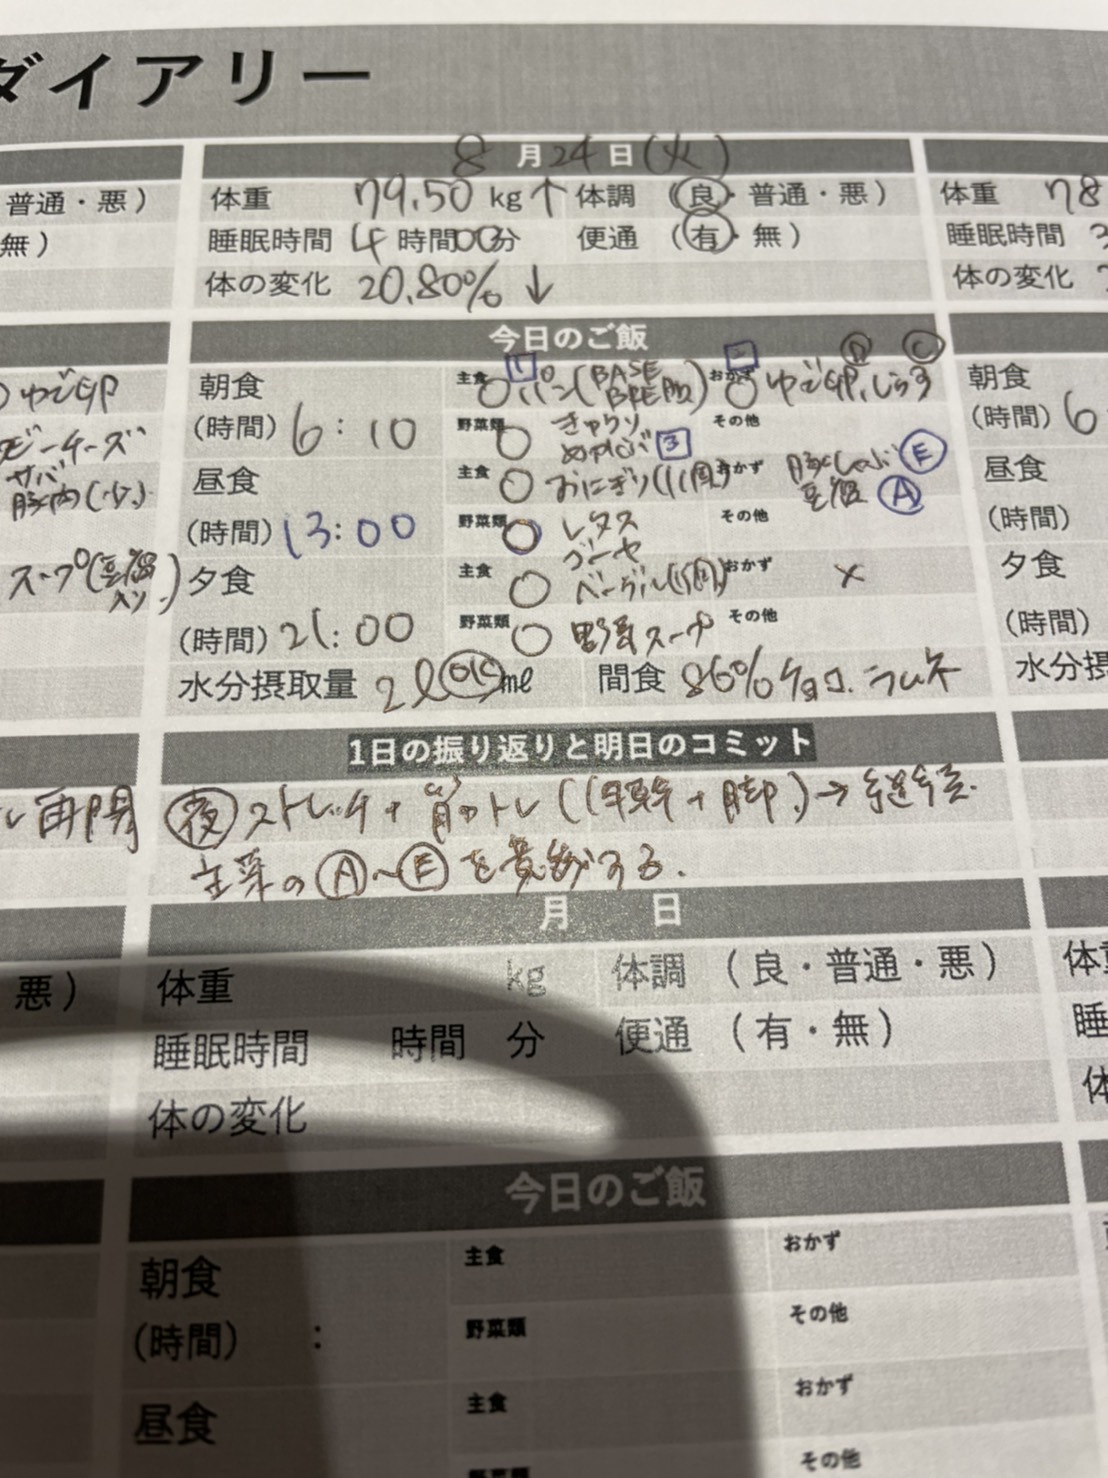 ダイアリー
8月24日(火)
普通・悪)
体重 79.50 kg↑ 体調 (良・普通・悪)
体重 78
無)
睡眠時間 4時間00分 便通 (有・無)
睡眠時間
体の変化 20.80% ↓
体の変化
今日のご飯
ゆで卵
朝食 主食 1 ○パン(BASE BREAD) おかず 2 ○ ゆで卵、しらす D C
朝食
(時間) 6:10 野菜類 ○ きゅうり めかぶ 3 その他
(時間) 6
ビーチーズ
サバ
豚肉(少)
昼食 主食 ○ おにぎり(1個) おかず 豚しゃぶ E 豆腐 A
昼食
(時間) 13:00 野菜類 ○ レタス ゴーヤ その他
(時間)
スープ(豆腐入り)
夕食 主食 ○ ベーグル(1個) おかず ×
夕食
(時間) 21:00 野菜類 ○ 野菜スープ その他
(時間)
水分摂取量 2ℓ ml 間食 86%チョコ、ラムネ
水分摂
1日の振り返りと明日のコミット
再開
夜 ストレッチ+筋トレ(体幹+脚)→継続。
主菜のA〜Eを意識する。
月 日
悪)
体重 kg 体調 (良・普通・悪)
体重
睡眠時間 時間 分 便通 (有・無)
睡
体の変化
体
今日のご飯
朝食 主食 おかず
(時間) : 野菜類 その他
昼食 主食 おかず
野菜類 その他